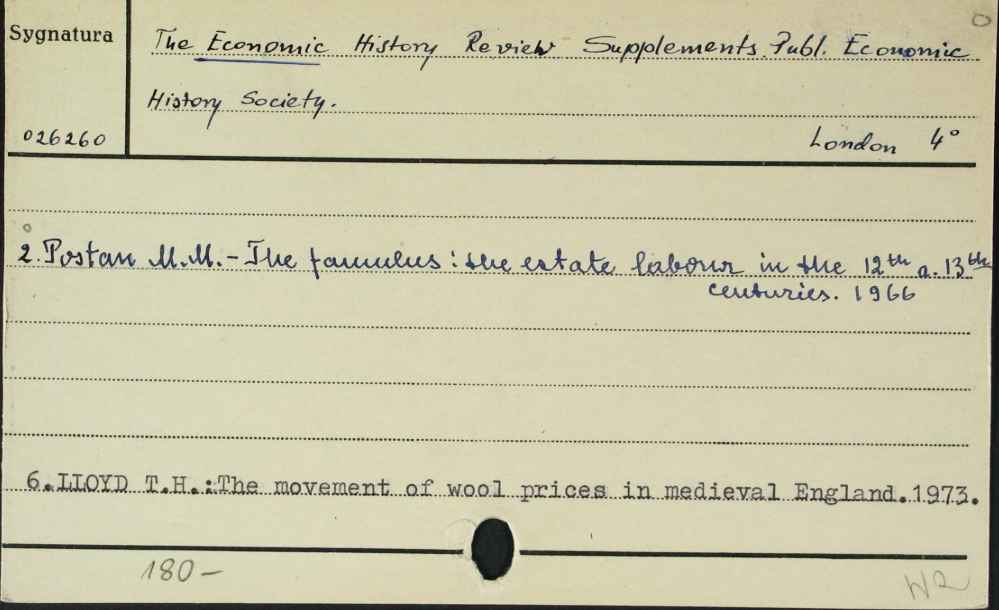 Sygnatura
The Economic History Review Supplements. Publ. Economic
History Society.
026260
London 4°
2. Postan M.M. - The famulus : the estate labour in the 12th a. 13th
centuries. 1966
6. LLOYD T.H.: The movement of wool prices in medieval England. 1973.
180 -